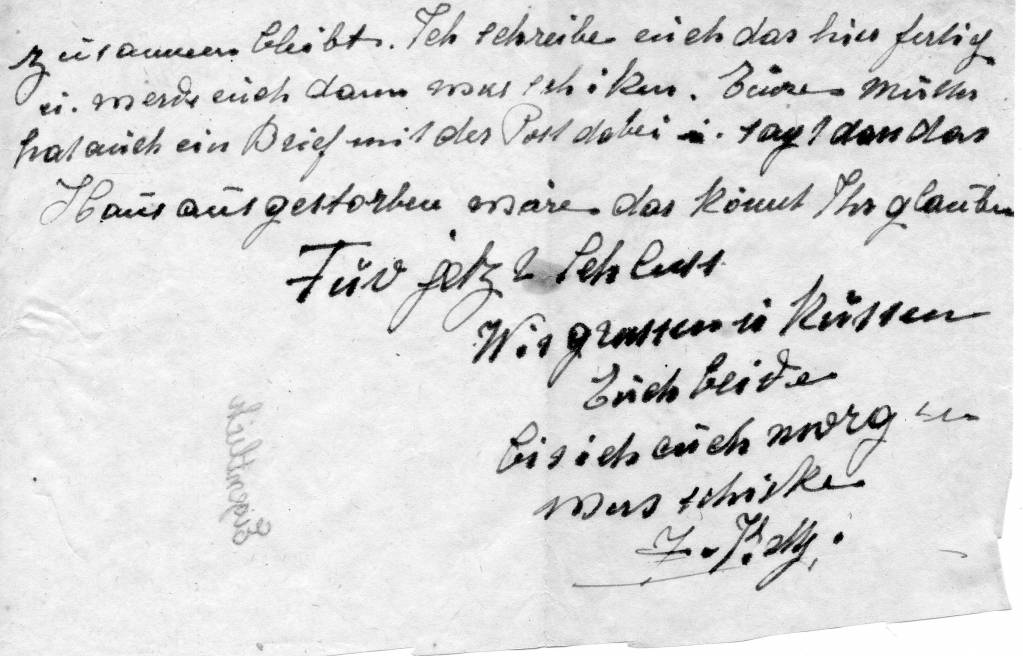 zusammen bleibt. Ich schreibe euch das hier fertig
u. werde euch dann was schiken. Eure Mutter
hat auch ein Brief mit der Post dabei u. sagt das das
Haus ausgestorben wäre das könnt Ihr glauben
Für jetzt Schluss
Wir grüssen u Küssen
Euch beide
bis ich euch morgen
was schicke